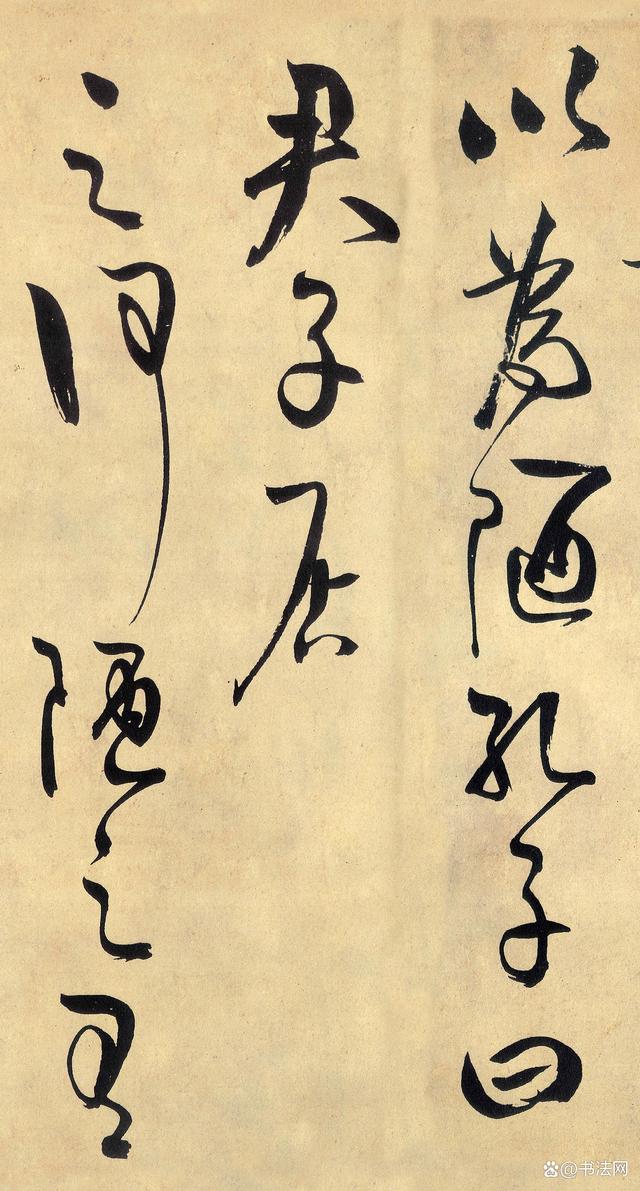 以為陋孔子曰
君子居
之何陋之有
@书法网